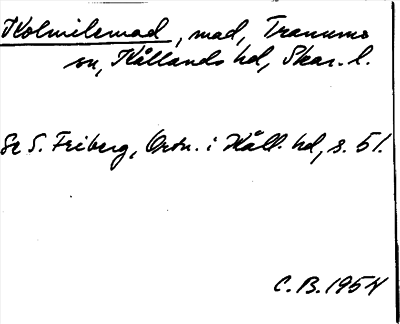 Kolmilemad, mad, Tranums
sn, Kållands hd, Skar. l.
Se S. Friberg, Ortn. i Kåll. hd, s. 51.
C.B. 1954